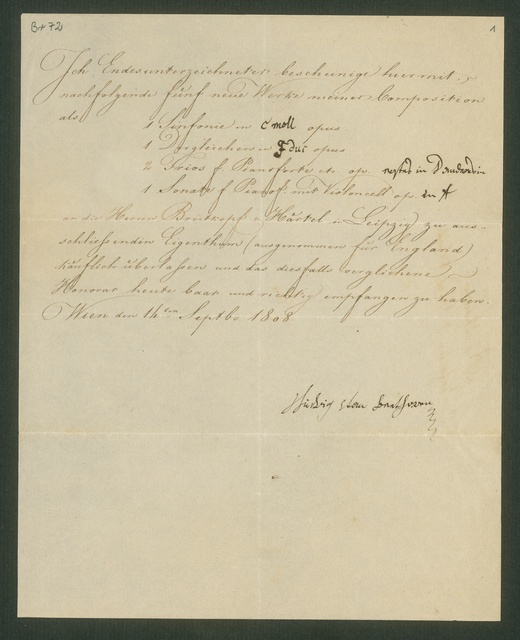 B+72
1
Ich Endesunterzeichneter bescheinige hiermit,
nachfolgende fünf neue Werke meiner Composition
als
1 Sinfonie in c moll opus
1 Dergleichen in F dur opus
2 Trios f. Pianoforte etc. op. in
1 Sonate f. Pianof. mit Violoncell op. in A
an die Herrn Breitkopf u Härtel in Leipzig zu aus-
schliessenden Eigenthum (ausgenommen für England)
käuflich überlassen und das diesfalls verglichene
Honorar heute baar und richtig empfangen zu haben.
Wien den 14ten Septbr 1808
Ludwig van Beethoven